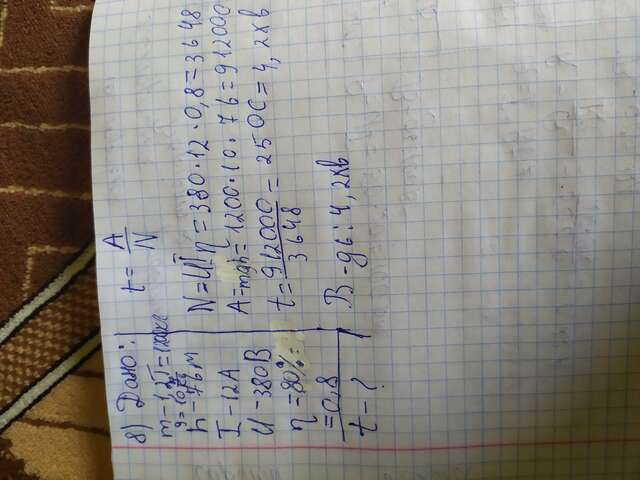 8) Дано:
m-1,2т=1200кг
g=10 Н/кг
h-76м
I-12А
U-380В
η=80%=
=0,8
t-?
t=A/N
N=UIη=380·12·0,8=3648
A=mgh=1200·10·76=912000
t=912000/3648=250с=4,2хв
В-дь: 4,2хв